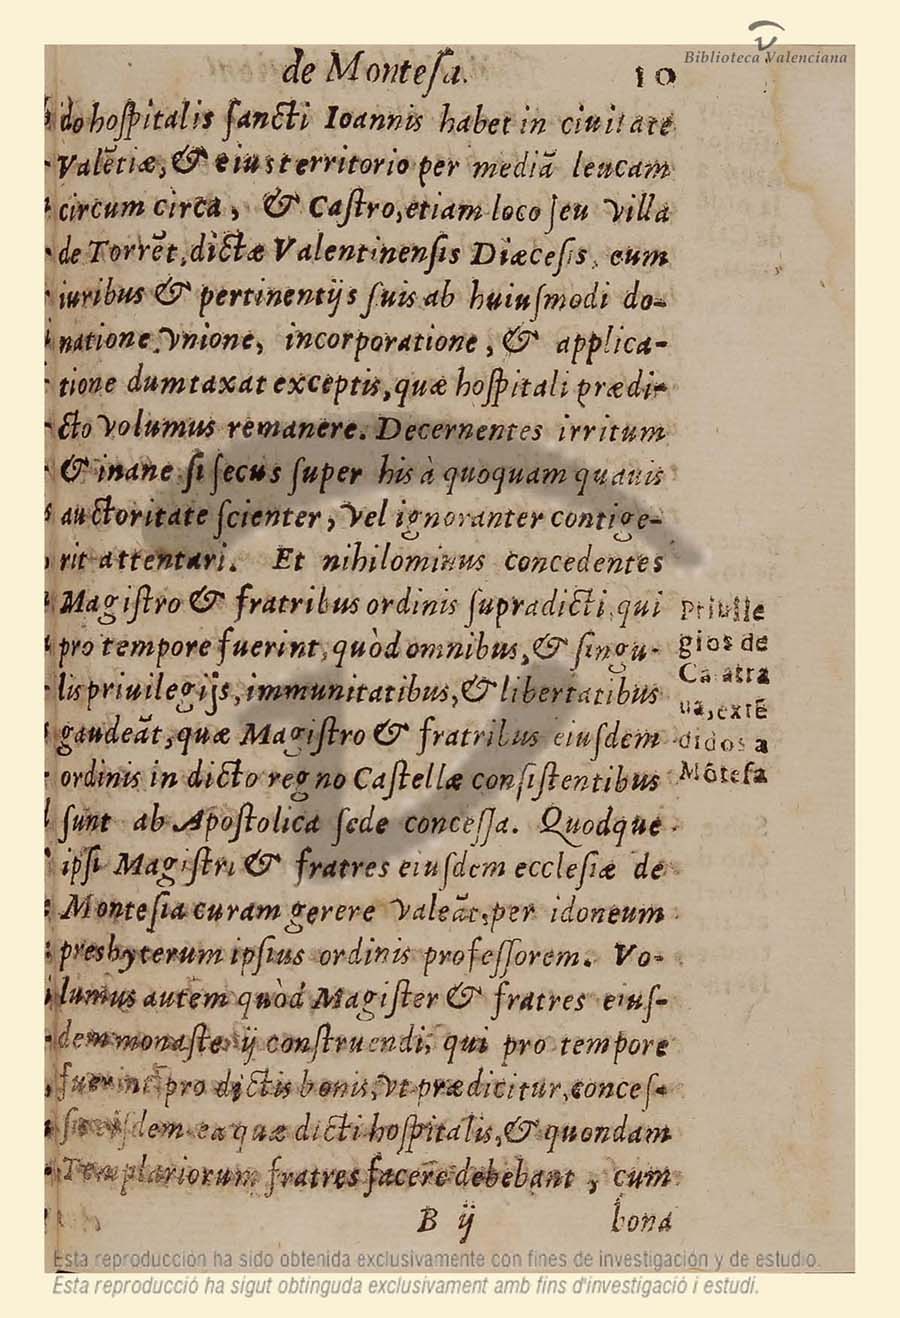 Biblioteca Valenciana
de Monteſa. 10
do hoſpitalis ſancti Ioannis habet in ciuitate
Valẽtiæ, & eius territorio per mediã leucam
circum circa, & Caſtro, etiam loco ſeu villa
de Torrẽt, dictæ Valentinenſis Diæceſis, cum
iuribus & pertinentijs ſuis ab huiuſmodi do-
natione, vnione, incorporatione, & applica-
tione dumtaxat exceptis, quæ hoſpitali prædi-
cto volumus remanere. Decernentes irritum
& inane ſi ſecus ſuper his à quoquam quauis
auctoritate ſcienter, vel ignoranter contige-
rit attentari. Et nihilominus concedentes
Magiſtro & fratribus ordinis ſupradicti, qui
pro tempore fuerint, quòd omnibus, & ſingu-
lis priuilegijs, immunitatibus, & libertatibus
gaudeãt, quæ Magiſtro & fratribus eiuſdem
ordinis in dicto regno Caſtellæ conſiſtentibus
ſunt ab Apoſtolica ſede conceſſa. Quodque
ipſi Magiſtri & fratres eiuſdem eccleſiæ de
Monteſia curam gerere valeãt, per idoneum
presbyterum ipſius ordinis profeſſorem. Vo-
lumus autem quòd Magiſter & fratres eiuſ-
dem monaſterij conſtruendi, qui pro tempore
fuerint pro dictis bonis, vt prædicitur, conceſ-
ſis eiſdem ea quæ dicti hoſpitalis, & quondam
Templariorum fratres facere debebant, cum
B ij bona
Priuile
gios de
Calatra
ua, extẽ
didos a
Mõteſa
Esta reproducción ha sido obtenida exclusivamente con fines de investigación y de estudio.
Esta reproducció ha sigut obtinguda exclusivament amb fins d'investigació i estudi.